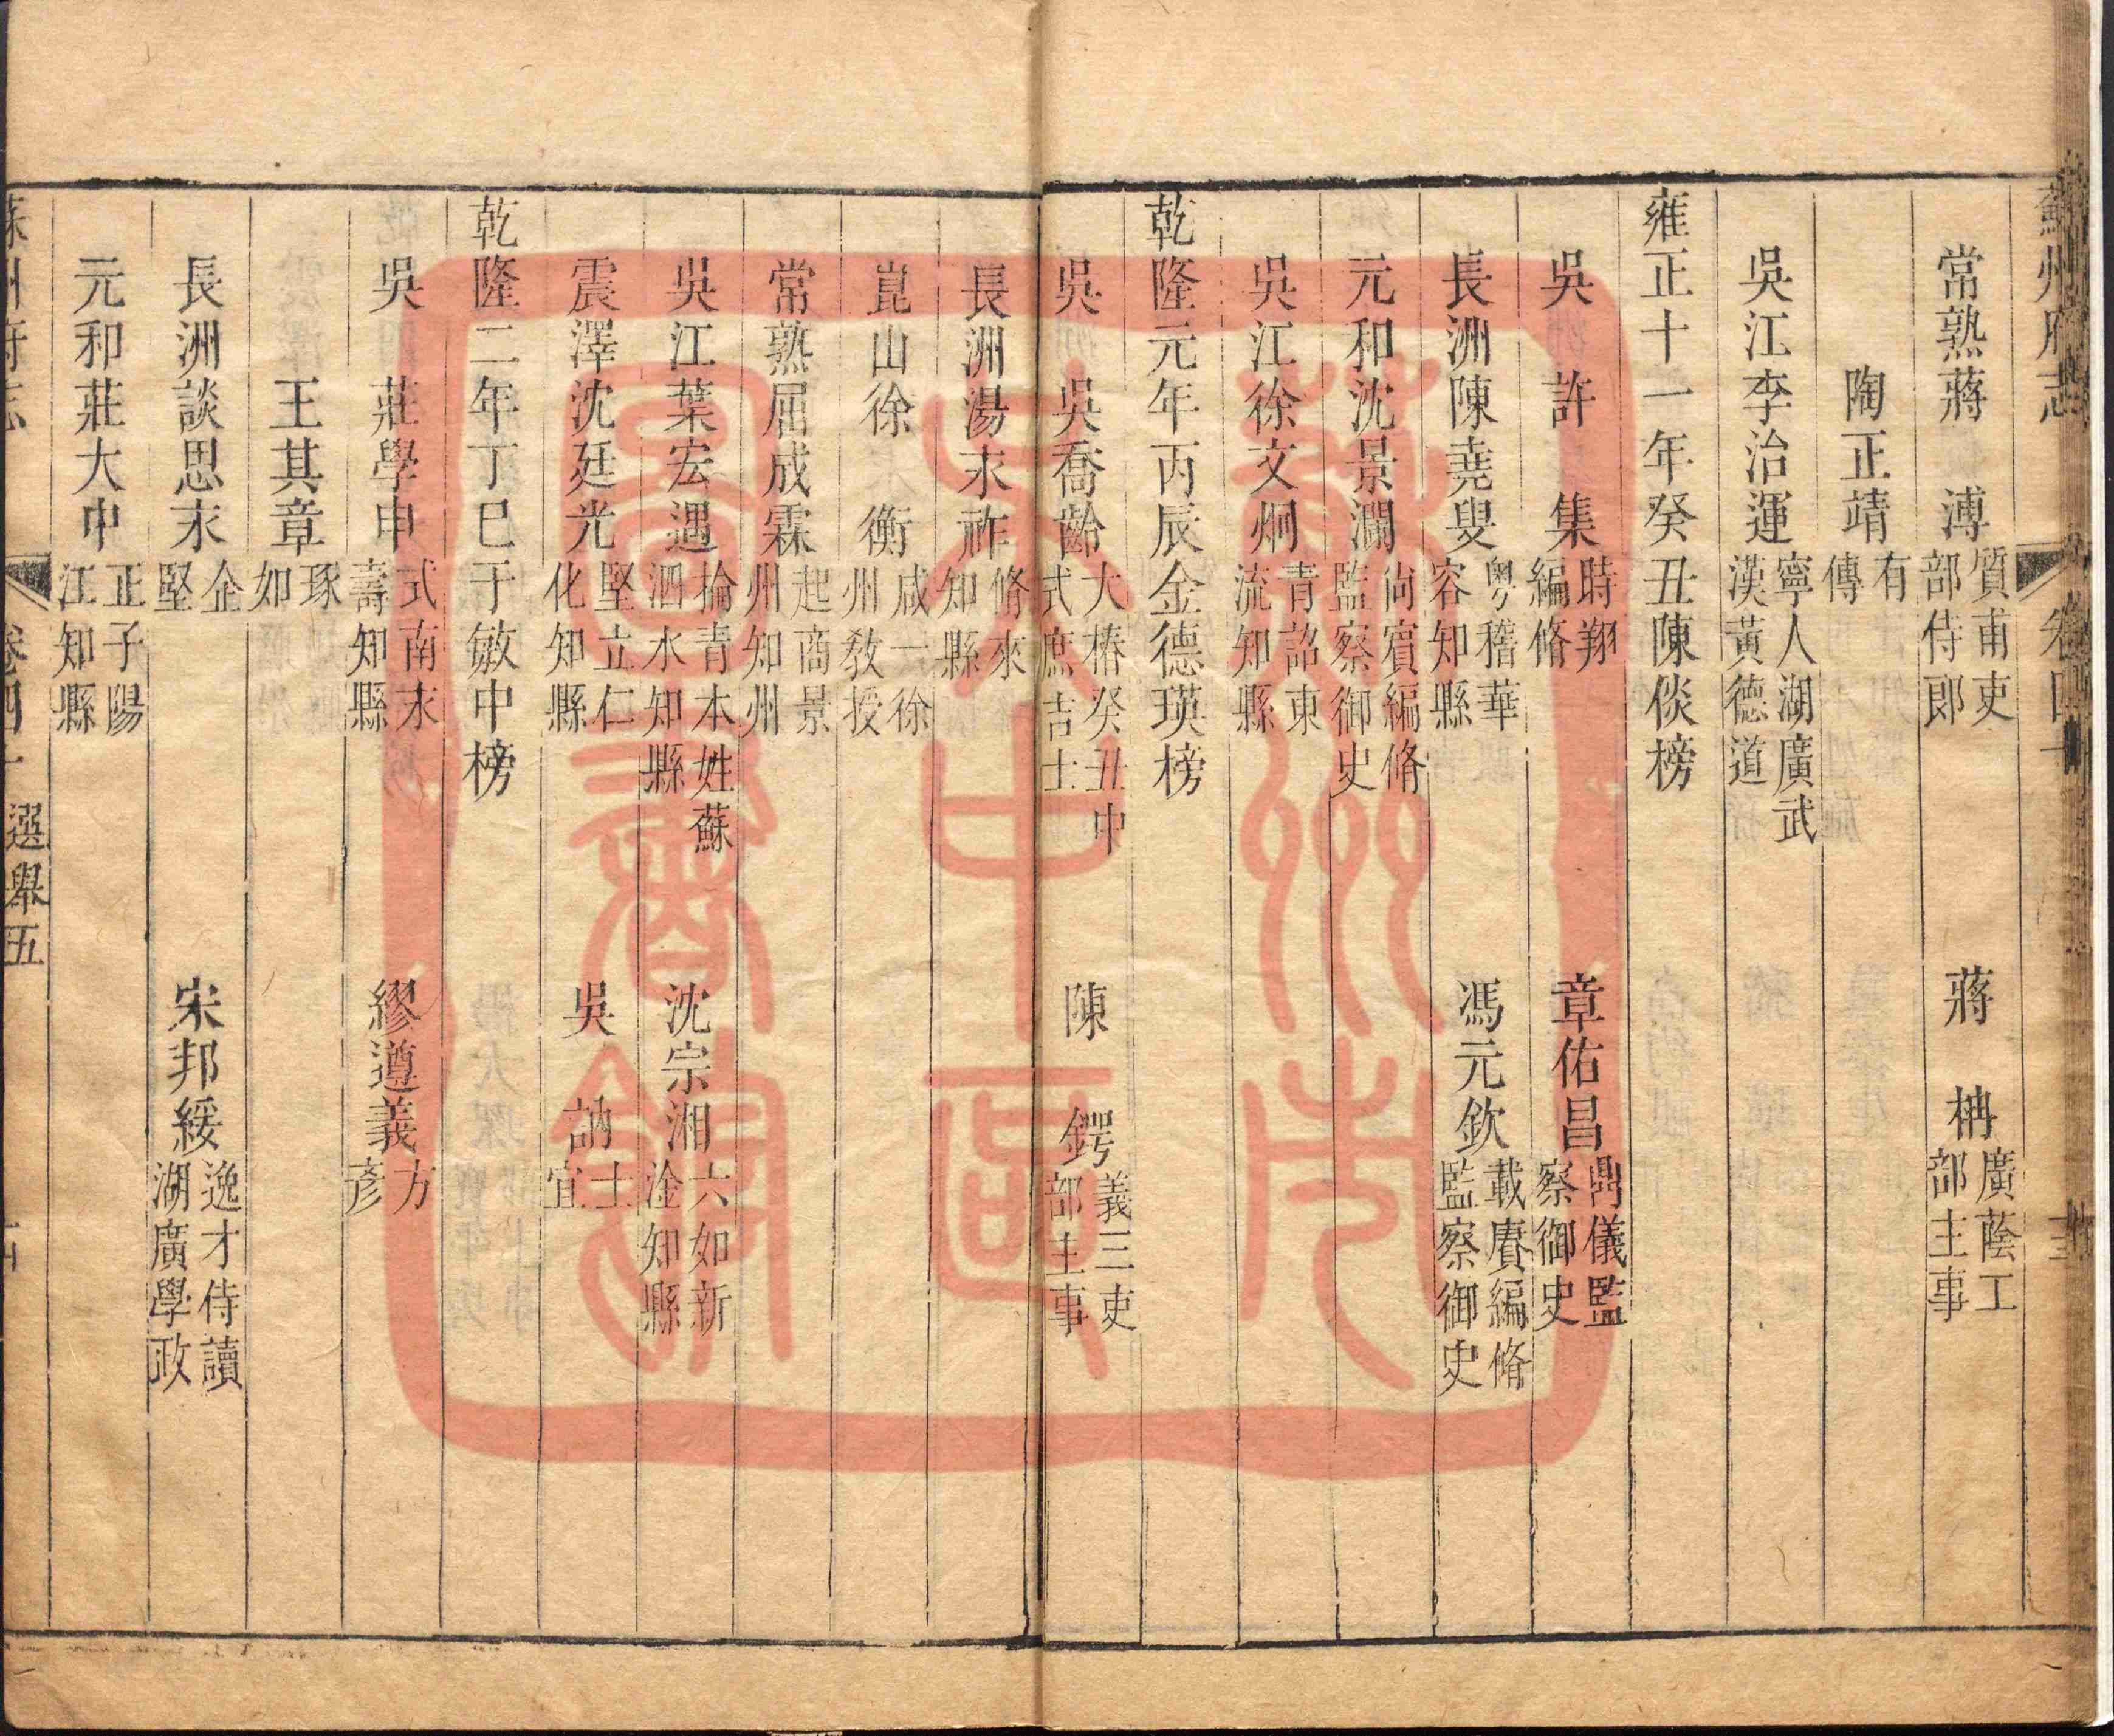 蘇州府志 卷四十
常熟蔣　溥質甫吏部侍郎　蔣　柟廣蔭工部主事
陶正靖有傳
吳江李治運寧人湖廣武漢黃德道
雍正十一年癸丑陳倓榜
吳　許　集時翔編脩　章佑昌鼎儀監察御史
長洲陳堯叟粵稽華容知縣　馮元欽載賡編脩監察御史
元和沈景瀾尚賓編脩監察御史
吳江徐文炯青詔東流知縣
乾隆元年丙辰金德瑛榜
吳　吳喬齡大椿癸丑中式庶吉士　陳　鍔義三吏部主事
長洲湯末祚脩來知縣
崑山徐　衡咸一徐州敎授
常熟屈成霖起商景州知州
吳江葉宏遇掄青本姓蘇泗水知縣　沈宗湘六如新淦知縣
震澤沈廷光堅立仁化知縣　吳　訥士宜
乾隆二年丁巳于敏中榜
吳　莊學申式南末壽知縣　繆遵義方彥
王其章琢如
長洲談思末企堅　宋邦綏逸才侍讀湖廣學政
元和莊大中正子陽江知縣
蘇州府志 卷四十 選舉五
蘇州市中區圖書館